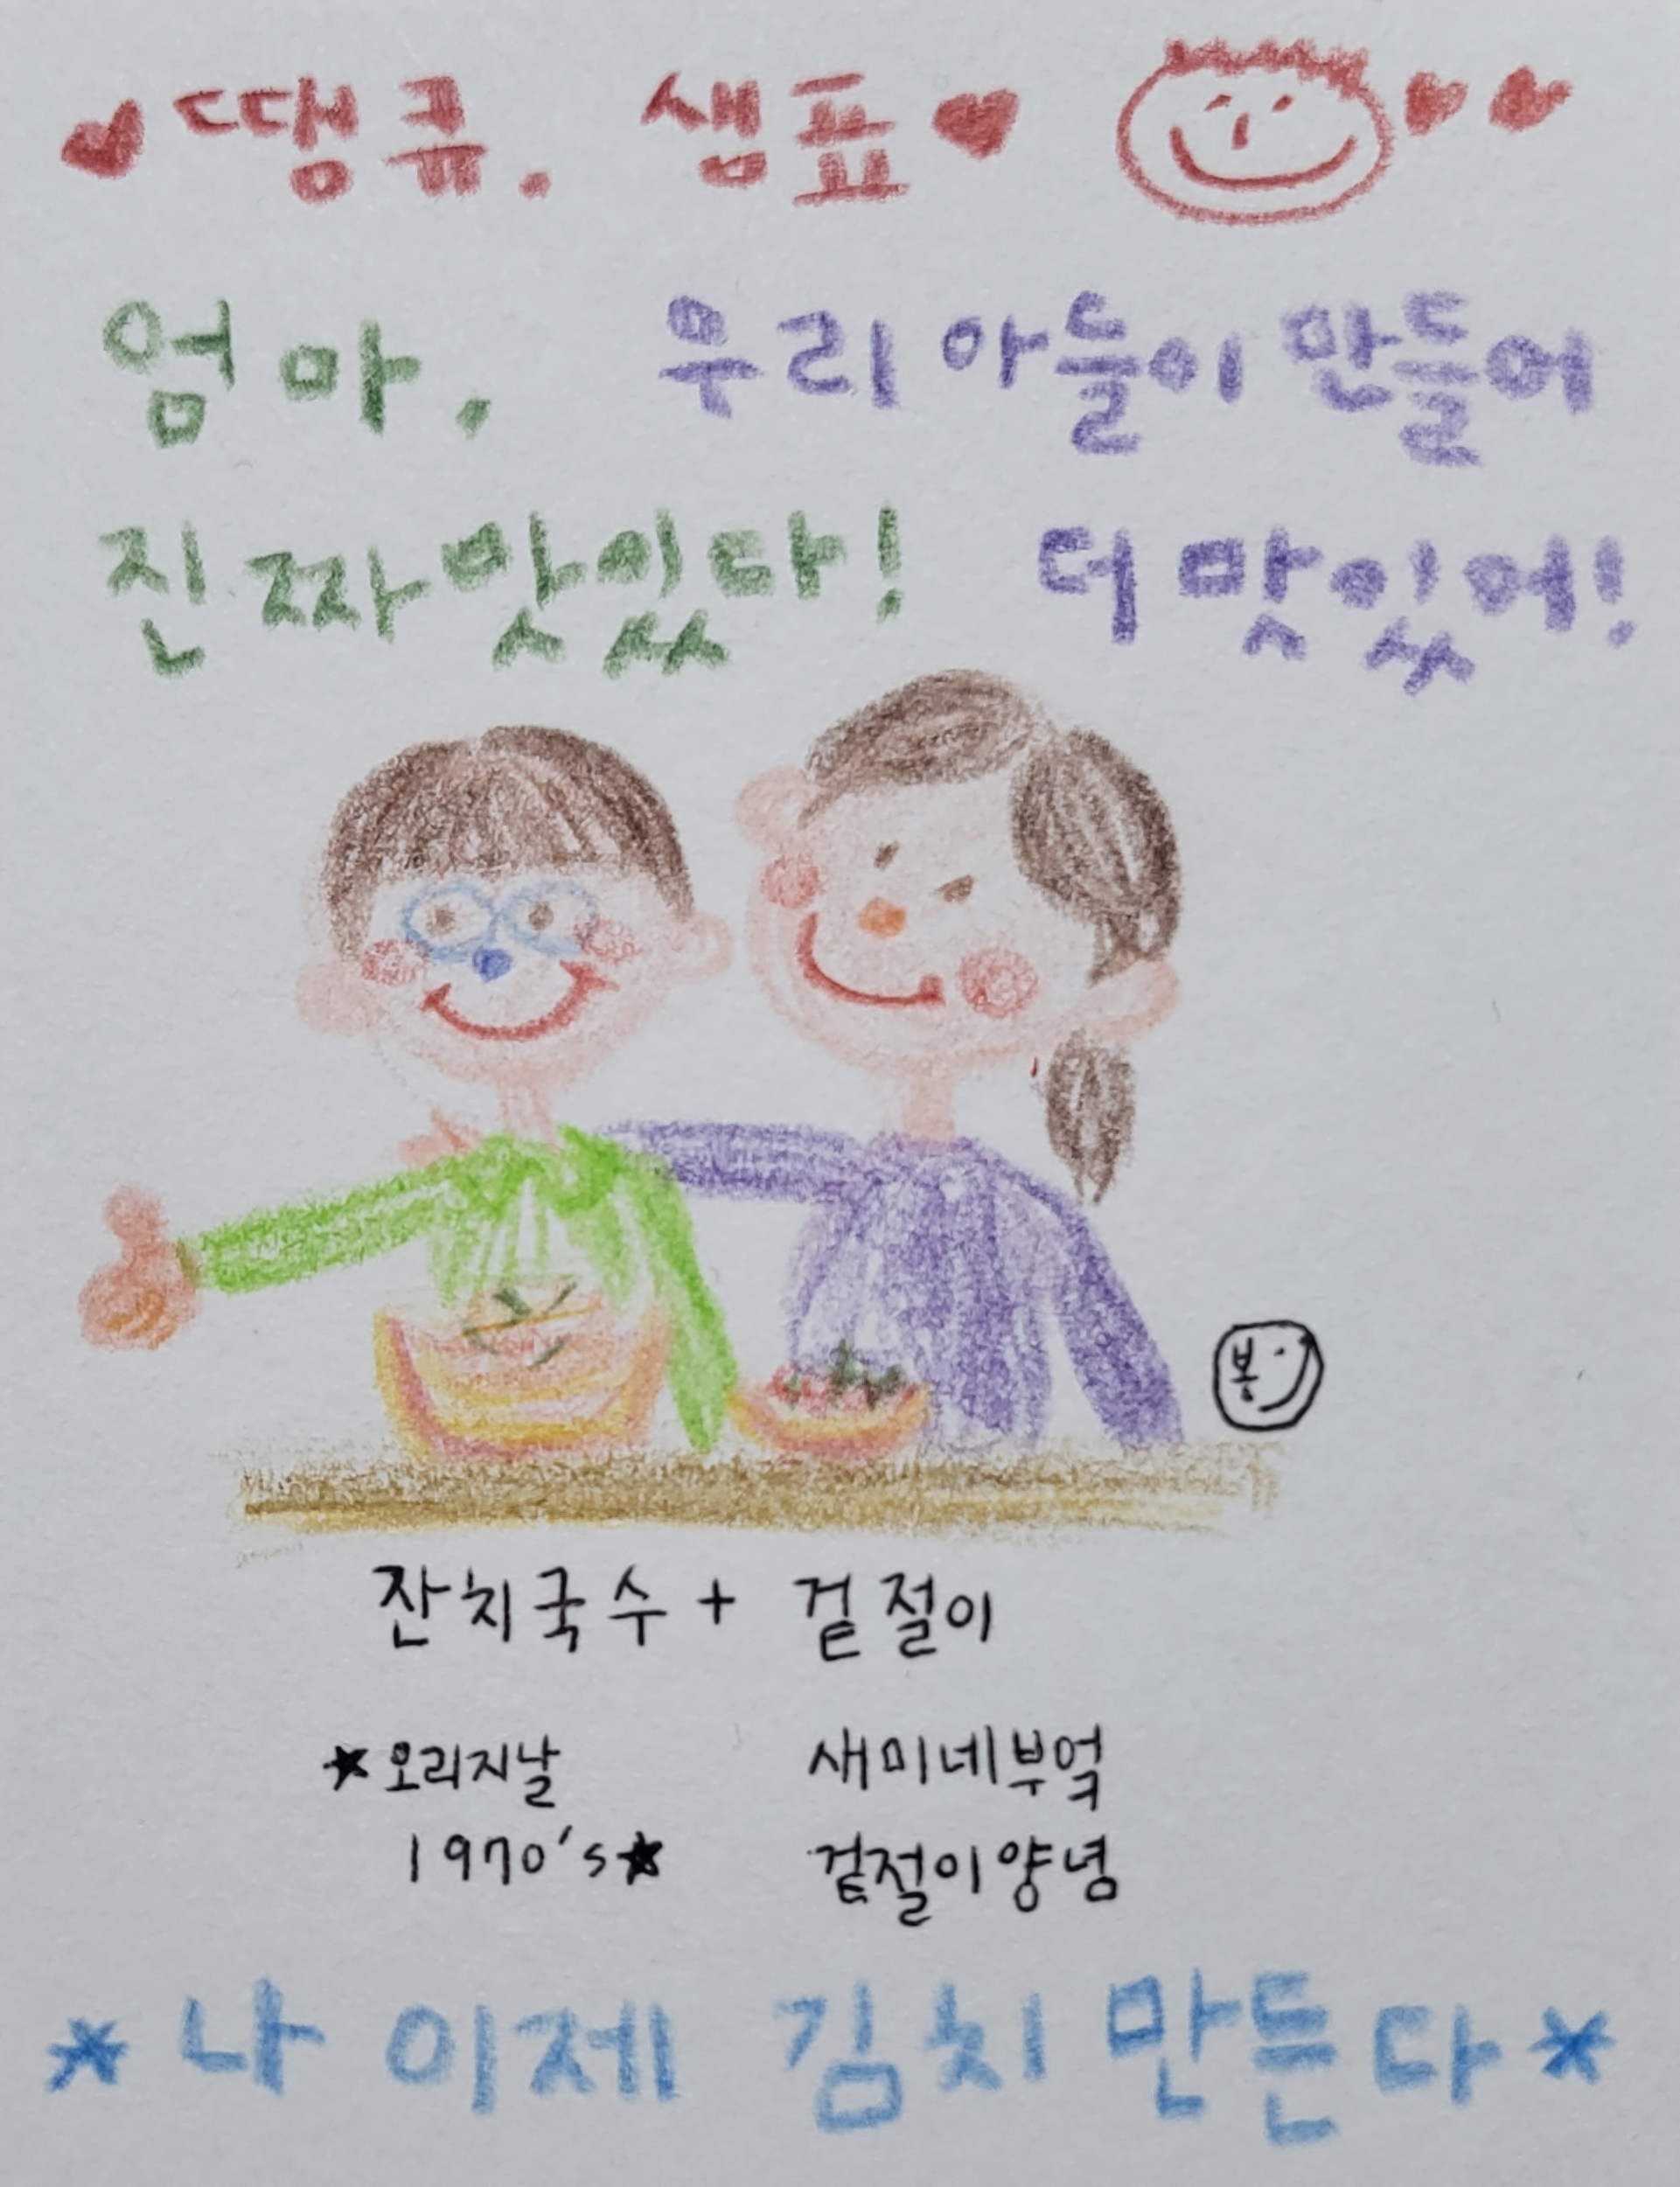 ♥땡큐. 샘표♥ ♥♥
엄마, 우리 아들이 만들어
진짜 맛있다! 더 맛있어!
봉
잔치국수 + 겉절이
★오리지날 새미네부엌
1970's★ 겉절이양념
*나 이제 김치 만든다*